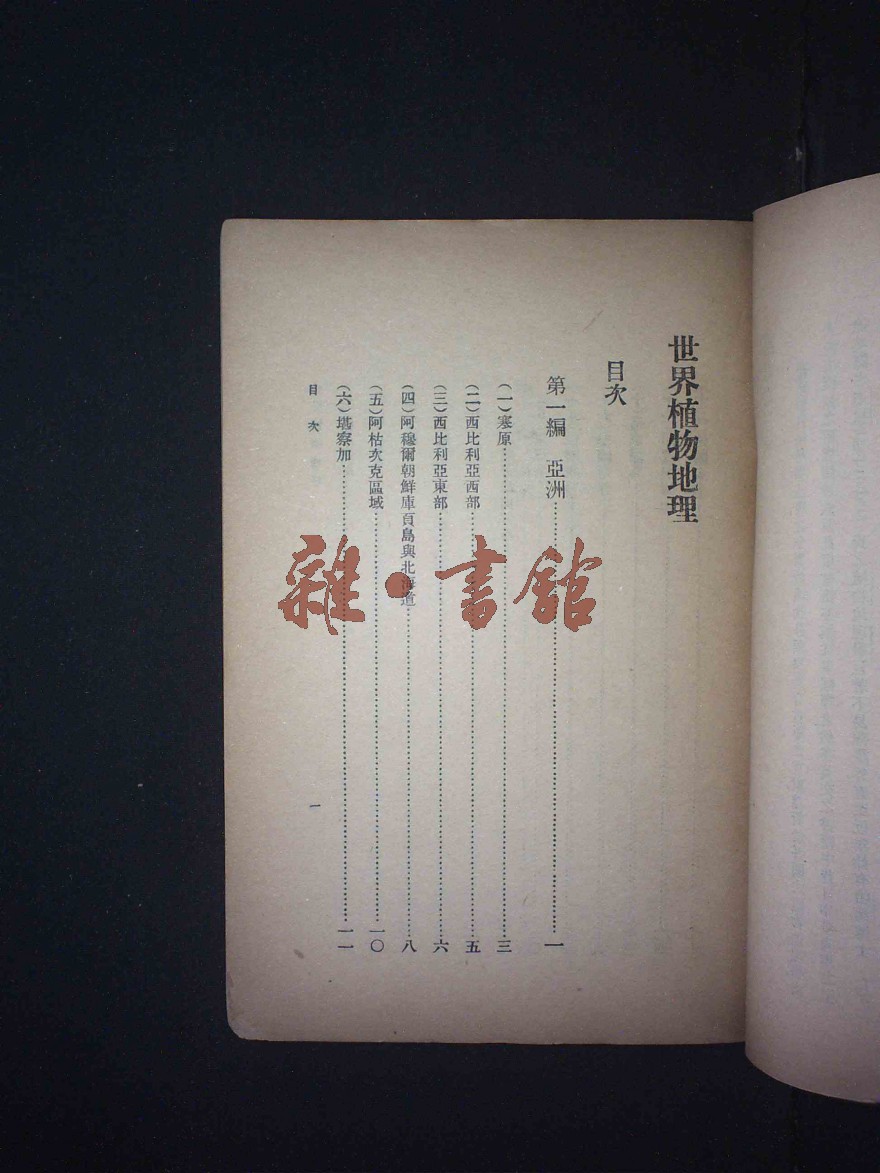 世界植物地理
目次
第一編　亞洲…………一
(一)寒原…………三
(二)西比利亞西部…………五
(三)西比利亞東部…………六
(四)阿穆爾朝鮮庫頁島與北海道…………八
(五)阿枯次克區域…………一〇
(六)堪察加…………一一
目次
一
雜·書館